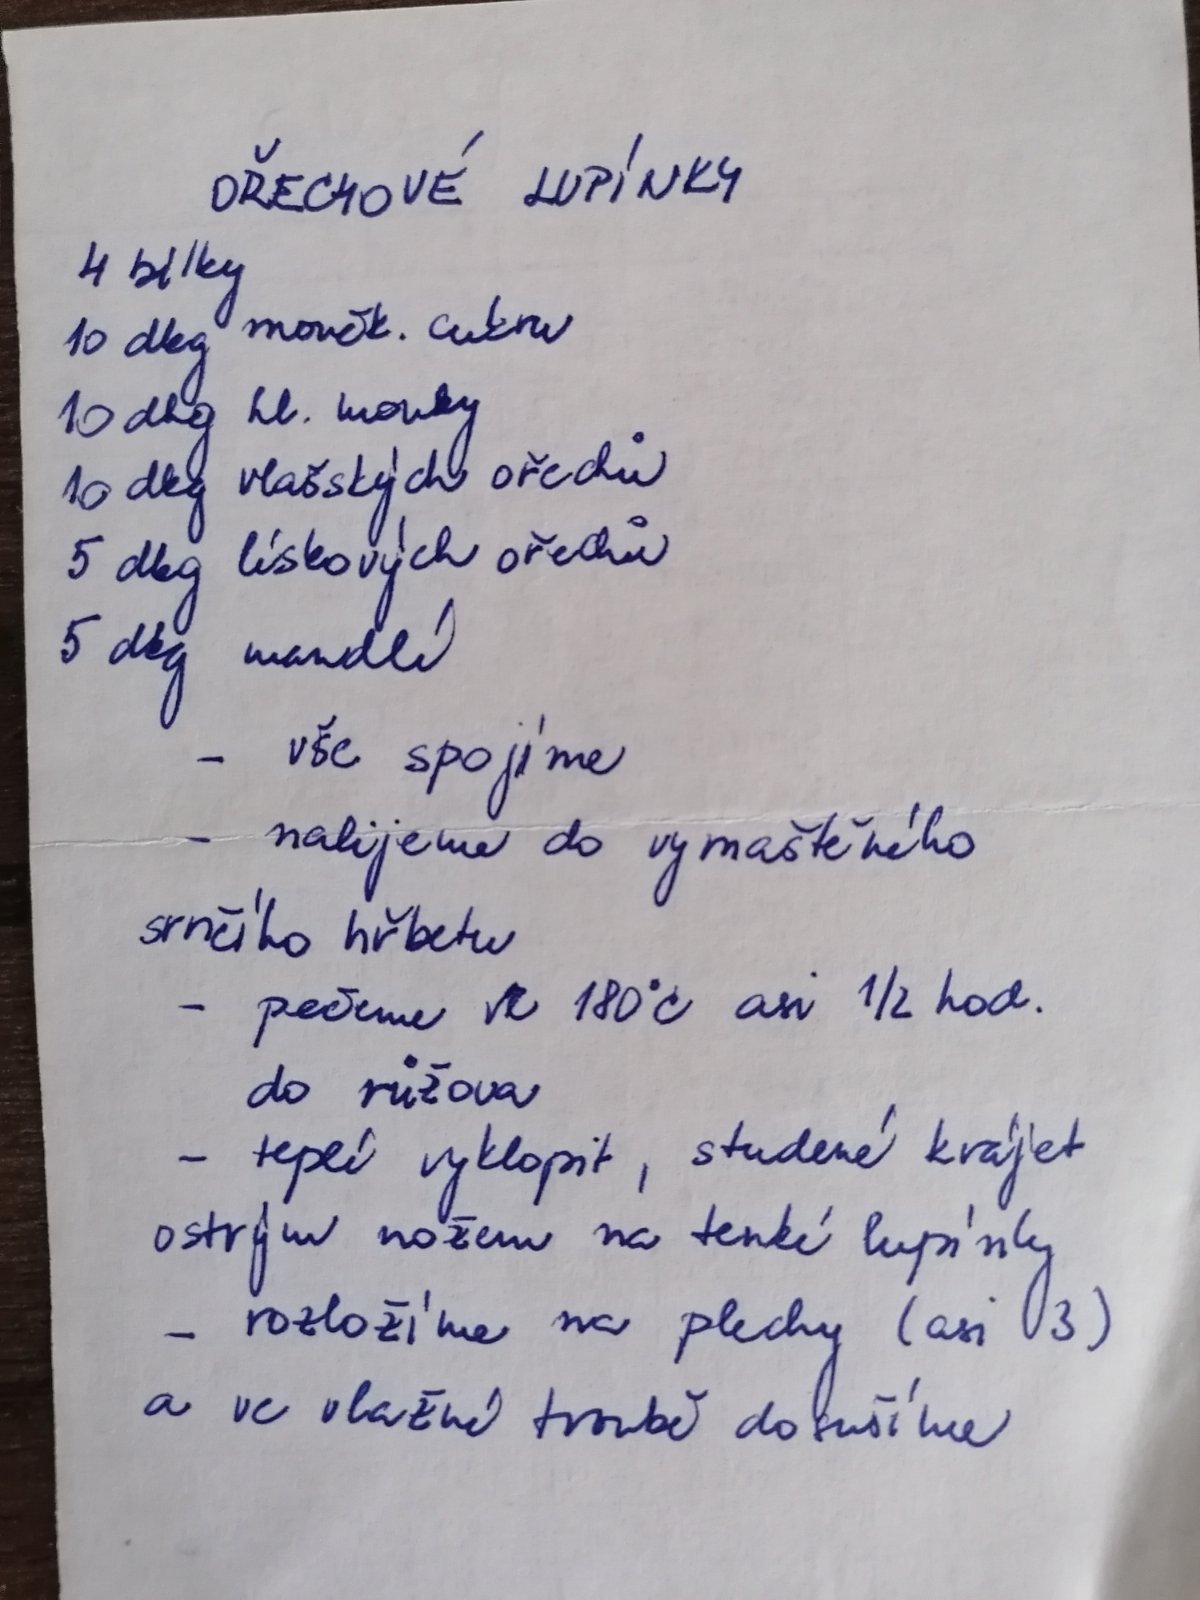 OŘECHOVÉ LUPÍNKY
4 bílky
10 dkg moučk. cukru
10 dkg hl. mouky
10 dkg vlašských ořechů
5 dkg lískových ořechů
5 dkg mandlí
- vše spojíme
- nalijeme do vymaštěného
srnčího hřbetu
- pečeme 180°C asi 1/2 hod.
do růžova
- teplé vyklopit, studené krájet
ostrým nožem na tenké lupínky
- rozložíme na plechy (asi 3)
a ve vlažné troubě dosušíme